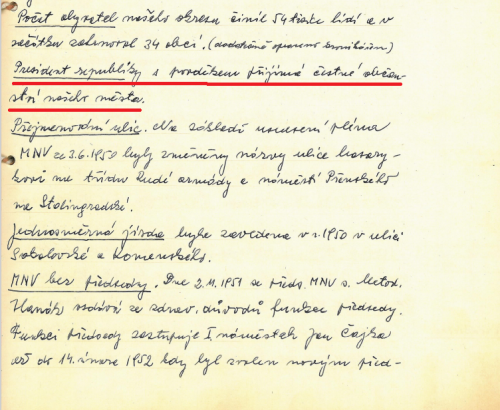 Počet obyvatel našeho okresu činil 54 tisíc lidí a v
začátku zahrnoval 34 obcí. (dodatečně opraveno kronikářem)
President republiky s povděkem přijímá čestné občan-
ství našeho města.
Přejmenování ulic. Na základě usnesení pléna
MNV ze 3.6.1950 byly změněny názvy ulice Masary-
kovi na třídu Rudé armády a náměstí
na Stalingradské.
Jednosměrná jízda byla zavedena v r. 1950 v ulici
Sokolovské a Komenského.
MNV bez předsedy. Dne 2.11.1951 se předs. MNV s. Metod.
Hanák vzdává ze zdrav. důvodů funkce předsedy.
Funkci předsedy zastupuje I náměstek Jan Čajka
až do 14. února 1952 kdy byl zvolen novým před-